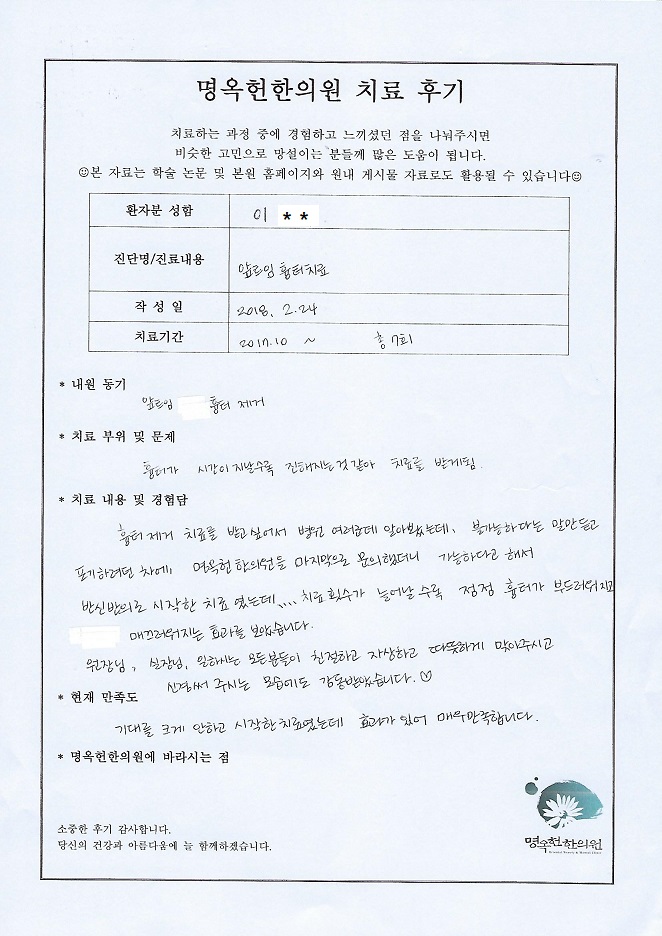 명옥헌한의원 치료 후기
치료하는 과정 중에 경험하고 느끼셨던 점을 나눠주시면
비슷한 고민으로 망설이는 분들께 많은 도움이 됩니다.
☺본 자료는 학술 논문 및 본원 홈페이지와 원내 게시물 자료로도 활용될 수 있습니다☺
환자분 성함 이 **
진단명/진료내용 앞트임 흉터치료
작 성 일 2018. 2.24
치료기간 2017.10 ~ 총 7회
* 내원 동기
앞트임 흉터 제거
* 치료 부위 및 문제
흉터가 시간이 지날수록 진해지는것 같아 치료를 받게됨.
* 치료 내용 및 경험담
흉터 제거 치료를 받고싶어서 병원 여러군데 알아봤는데, 불가능하다는 말만듣고
포기하려던 차에, 명옥헌한의원을 마지막으로 문의했더니 가능하다고 해서
반신반의로 시작한 치료 였는데.... 치료 횟수가 늘어날 수록 점점 흉터가 부드러워지고
매끄러워지는 효과를 보았습니다.
원장님, 실장님, 일하시는 모든분들이 친절하고 자상하고 따뜻하게 맞아주시고
신경써 주시는 모습에도 감동받았습니다.♡
* 현재 만족도
기대를 크게 안하고 시작한치료였는데 효과가 있어 매우만족합니다.
* 명옥헌한의원에 바라시는 점
소중한 후기 감사합니다.
당신의 건강과 아름다움에 늘 함께하겠습니다.
명옥헌한의원